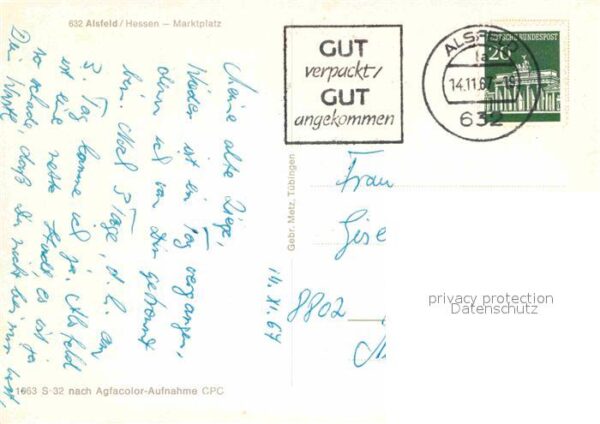 632 Alsfeld / Hessen — Marktplatz
GUT
verpackt/
GUT
angekommen
ALSFELD
1a
14.11.67-19
632
DEUTSCHE BUNDESPOST
20
Meine alte Ziege,
Wieder ist ein Tag vergangen,
ohne ich von Dir getrennt
bin. Noch 3 Tage, d. h. am
3. Tag komme ich ja. Alsfeld
ist eine nette Stadt, es ist ja
so schade, daß Du nicht bei mir bist,
Dein
14. XI. 67
Gebr. Metz, Tübingen
Frau
Gise
8802
privacy protection
Datenschutz
1663 S-32 nach Agfacolor-Aufnahme CPC